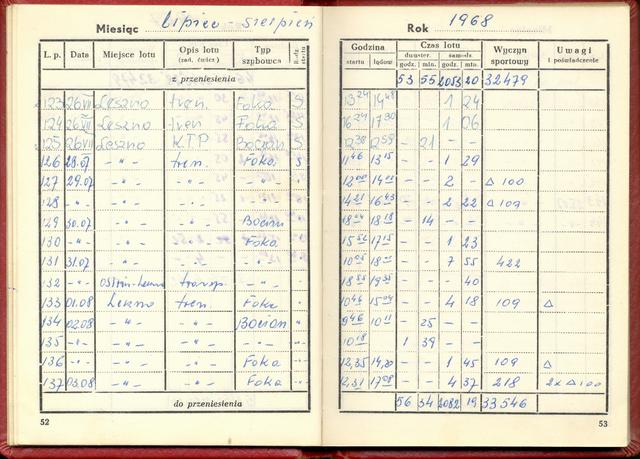 Miesiąc lipiec - sierpień Rok 1968
L. p. Data Miejsce lotu Opis lotu (zad. ćwicz.) Typ szybowca Rodz. startu Godzina startu lądow. Czas lotu dwuster. godz. min. samodz. godz. min. Wyczyn sportowy Uwagi i poświadczenie
z przeniesienia 53 55 2053 20 32479
123 26 VII Leszno tren. Foka S 13 24 14 48 1 24
124 26 VII Leszno tren Foka S 16 24 17 30 1 26
125 26 VII Leszno KTP Bocian S 12 38 12 59 - 21 - -
126 28.07 -"- tren. Foka S 11 46 13 15 - - 1 29
127 29.07 -"- -"- -"- 12 00 14 00 - - 2 - Δ 100
128 -"- -"- -"- -"- 14 21 16 43 - - 2 22 Δ 109
129 30.07 -"- -"- Bocian 18 04 18 18 - 14 - -
130 -"- -"- -"- Foka 15 52 17 15 - - 1 23
131 31.07 -"- -"- -"- 10 05 18 00 - - 7 55 422
132 -"- transp. -"- 18 55 19 35 - - - 40
133 01.08 Leszno tren. Foka 10 46 15 04 - - 4 18 109 Δ
134 02.08 -"- -"- Bocian 9 46 10 11 - 25 - -
135 -"- -"- -"- -"- 10 18 1 39 - -
136 -"- -"- -"- Foka 12,35 14,20 - - 1 45 109 Δ
137 03.08 -"- -"- Foka 12,31 17 08 - - 4 37 218 2x Δ 100
do przeniesienia 56 34 2082 19 33546
52 53